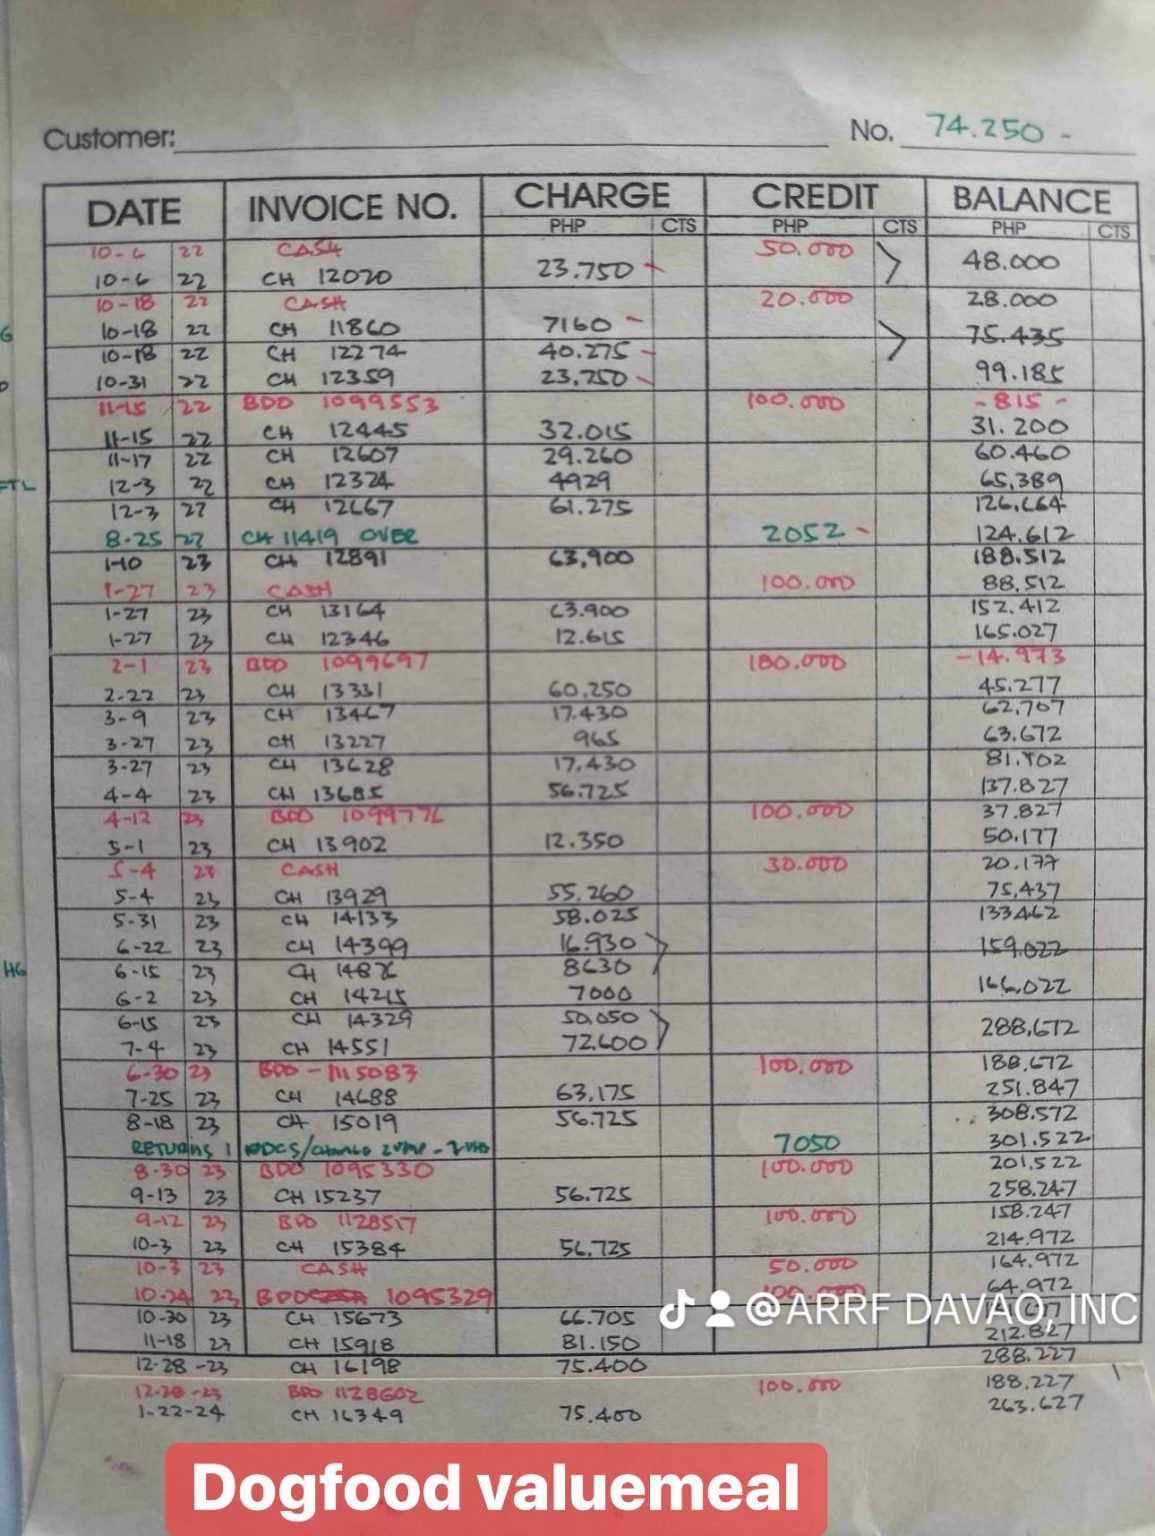 Customer: No. 74.250 -
DATE INVOICE NO. CHARGE CREDIT BALANCE
PHP CTS PHP CTS PHP CTS
10-6 22 CASH 50.000
10-6 22 CH 12020 23.750 48.000
10-18 22 CASH 20.000 28.000
10-18 22 CH 11860 7160 - 75.435
10-18 22 CH 12274 40.275 -
10-31 22 CH 12359 23,750 - 99.185
11-15 22 BDO 1099553 100.000 - 815 -
11-15 22 CH 12445 32.015 31.200
11-17 22 CH 12607 29.260 60.460
12-3 22 CH 12324 4929 65,389
12-3 22 CH 12667 61.275 126,664
8-25 22 CH 11419 OVER 2052 - 124.612
1-10 23 CH 12891 63,900 188.512
1-27 23 CASH 100.000 88,512
1-27 23 CH 13164 63.900 152.412
1-27 23 CH 12346 12.615 165.027
2-1 23 BDO 1099697 180.000 -14.973
2-22 23 CH 13331 60,250 45.277
3-9 23 CH 13467 17.430 62,707
3-27 23 CH 13227 965 63.672
3-27 23 CH 13628 17.430 81.102
4-4 23 CH 13685 56.725 137.827
4-12 23 BDO 1099776 100.000 37.827
5-1 23 CH 13902 12.350 50.177
5-4 23 CASH 30.000 20.177
5-4 23 CH 13929 55.260 75,437
5-31 23 CH 14133 58.025 133462
6-22 23 CH 14399 16.930 159.022
6-15 23 CH 8630
6-2 23 CH 14215 7000 166.022
6-15 23 CH 14329 50,050
7-4 23 CH 14551 72.600 288,672
6-30 23 BDO - 1115083 100.000 188,672
7-25 23 CH 14688 63,175 251.847
8-18 23 CH 15019 56.725 308.572
RETURNS 7050 301.522
8-30 23 BDO 1095330 100.000 201,522
9-13 23 CH 15237 56.725 258.247
9-12 23 BDO 1128517 100.000 158.247
10-3 23 CH 15384 56,725 214.972
10-3 23 CASH 50.000 164.972
10-24 23 BDO 1095329 100.000 64.972
10-30 23 CH 15673 66.705
11-18 23 CH 15918 81.150 212.827
12-28-23 CH 16198 75.400 288.227
12-28-23 BDO 1128602 100.000 188.227
1-22-24 CH 16349 75.400 263.627
@ARRF DAVAO, INC
Dogfood valuemeal